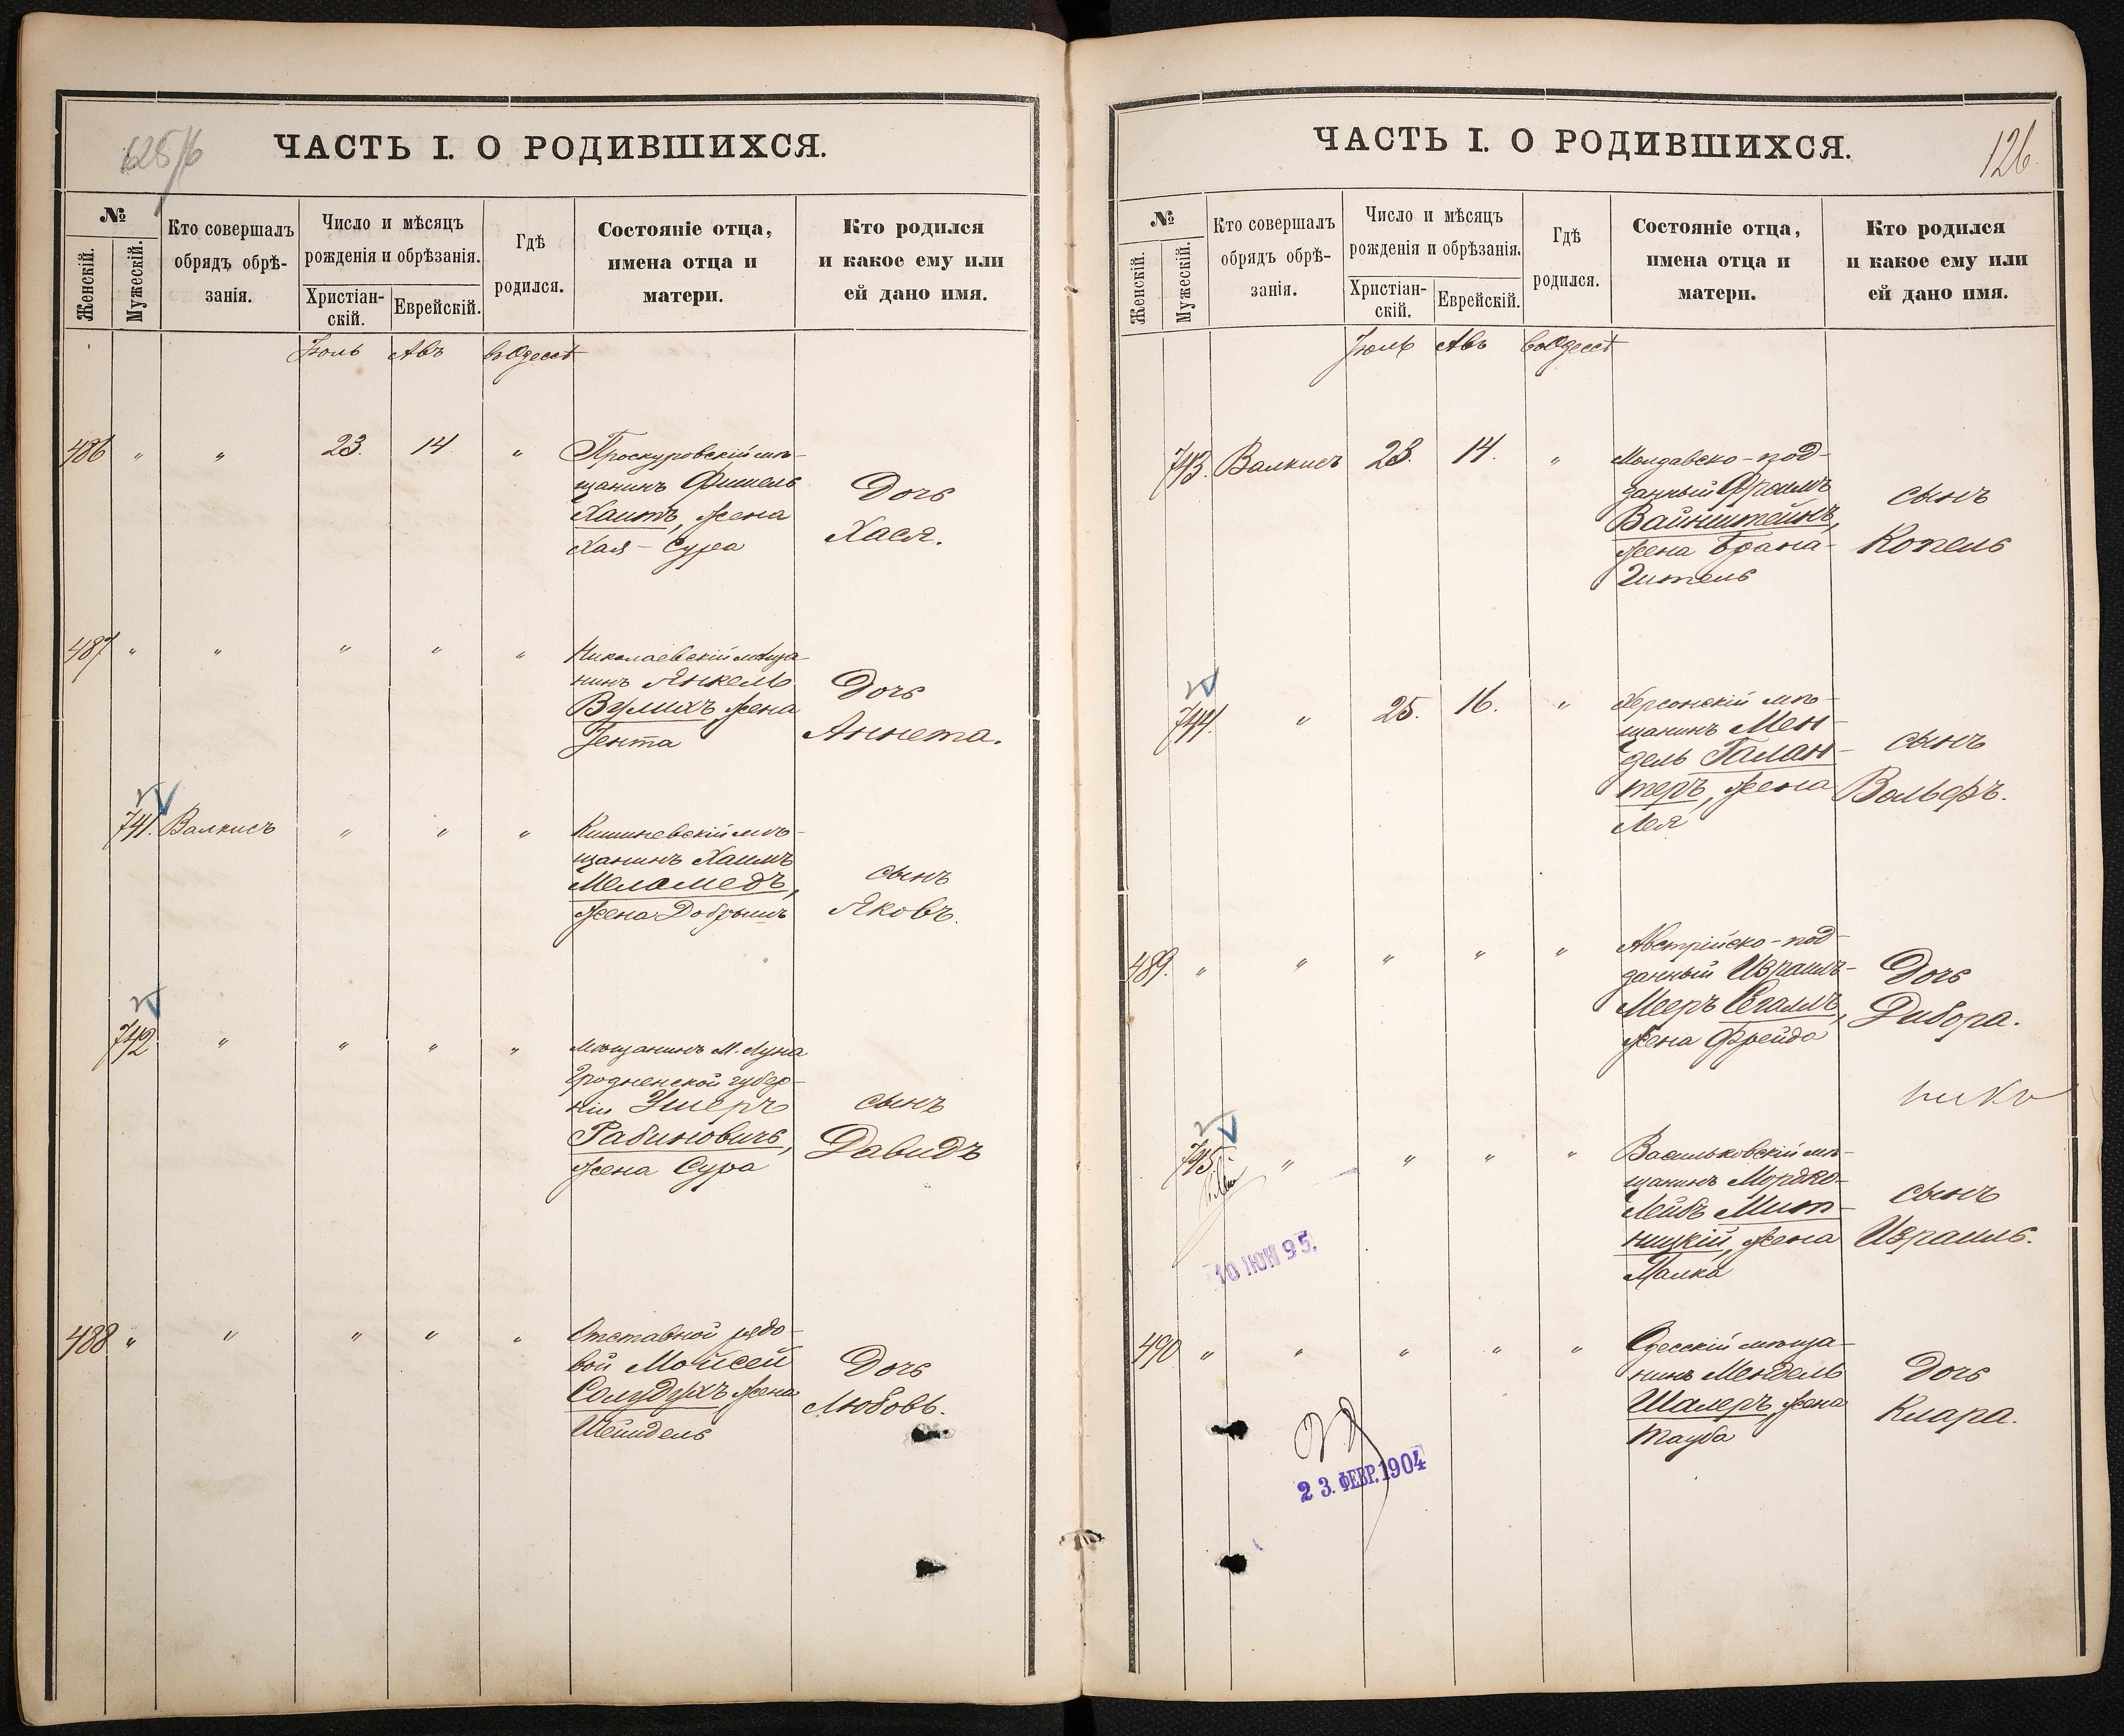 625/6
ЧАСТЬ I. О РОДИВШИХСЯ.
№
Женскій.
Мужескій.
Кто совершалъ
обрядъ обрѣ-
занія.
Число и мѣсяцъ
рожденія и обрѣзанія.
Христіан-
скій.
Еврейскій.
Гдѣ
родился.
Состояніе отца,
имена отца и
матери.
Кто родился
и какое ему или
ей дано имя.
Іюль Авъ въ Одессѣ
486 " " 23. 14 "
Проскуровскій мѣ-
щанинъ Фишель
Хаитъ, жена
Хая-Сура
Дочь
Хася.
487 " " " " "
Николаевскій мѣща-
нинъ Янкель
Вулихъ жена
Іента
Дочь
Аннета.
741. Валкисъ " " "
Кишиневскій мѣ-
щанинъ Хаимъ
Меламедъ,
жена Добрышъ
сынъ
Яковъ.
742 " " " "
Мѣщанинъ М. Луна
Гродненской губер-
ніи Ушеръ
Рабиновичь,
жена Сура
сынъ
Давидъ
488 " " " " "
Отставной рядо-
вой Мойсей
Солудухъ жена
Шейндель
Дочь
Любовь.
ЧАСТЬ I. О РОДИВШИХСЯ.
126.
№
Женскій.
Мужескій.
Кто совершалъ
обрядъ обрѣ-
занія.
Число и мѣсяцъ
рожденія и обрѣзанія.
Христіан-
скій.
Еврейскій.
Гдѣ
родился.
Состояніе отца,
имена отца и
матери.
Кто родился
и какое ему или
ей дано имя.
Іюль Авъ въ Одессѣ
743. Валкисъ 23. 14. "
Молдавско-под-
данный Фроимъ
Вайнштейнъ,
жена Брана-
Гитель
сынъ
Копель
744. " 25. 16. "
Херсонскій мѣ-
щанинъ Мен-
дель Галан-
теръ, жена
Лея
сынъ
Вольфъ.
489. " " " " "
Австрійско-под-
данный Израиль-
Мееръ
жена Фрейда
Дочь
Дибора.
745 " " " "
Васильковскій мѣ-
щанинъ Мордко-
Лейбъ Мит-
ницкій, жена
Малка
сынъ
Израиль.
10 ІЮН 95.
490 " " " " "
Одесскій мѣща-
нинъ Мендель
Шалеръ жена
Тауба
Дочь
Клара.
23. ФЕВР. 1904